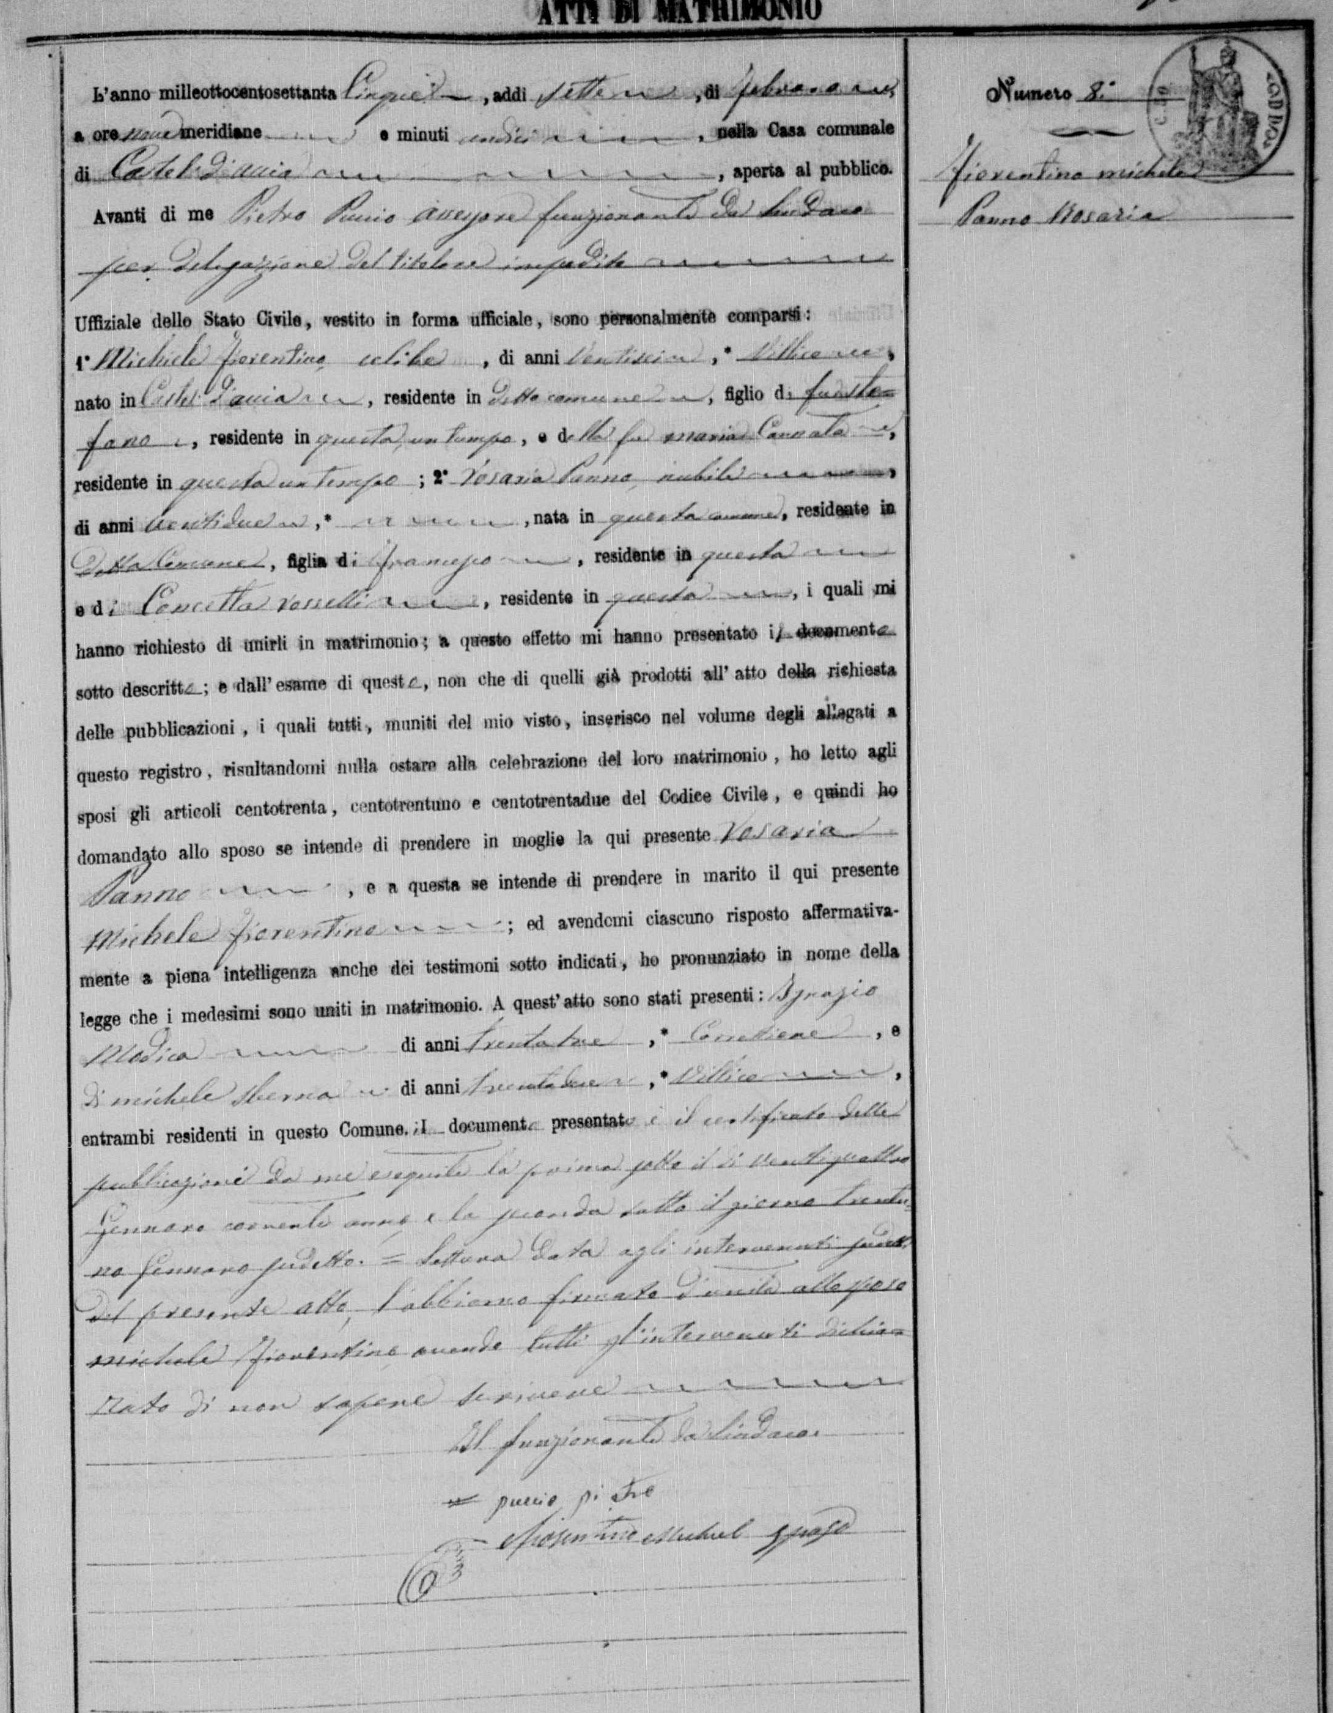 ATTI DI MATRIMONIO
Numero 8.
Fiorentino Michele
Panno Rosaria
L'anno milleottocentosettanta Cinque, addi sette, di Febraro
a ore nove meridiane e minuti undici, nella Casa comunale
di Casteldaccia, aperta al pubblico.
Avanti di me Pietro Puccio assessore funzionante da Sindaco
per delegazione del titolare impedito
Uffiziale dello Stato Civile, vestito in forma ufficiale, sono personalmente comparsi:
1° Michele Fiorentino, celibe, di anni ventisei, Villico,
nato in Casteldaccia, residente in detto comune, figlio di fu Ste=
fano, residente in questa un tempo, e della fu Maria Cannata,
residente in questa un tempo; 2° Rosaria Panno, nubile,
di anni ventidue, nata in questa comune, residente in
detta Comune, figlia di Francesco, residente in questa
e di Concetta Rosselli, residente in questa, i quali mi
hanno richiesto di unirli in matrimonio; a questo effetto mi hanno presentato il documento
sotto descritto; e dall'esame di questo, non che di quelli già prodotti all'atto della richiesta
delle pubblicazioni, i quali tutti, muniti del mio visto, inserisco nel volume degli allegati a
questo registro, risultandomi nulla ostare alla celebrazione del loro matrimonio, ho letto agli
sposi gli articoli centotrenta, centotrentuno e centotrentadue del Codice Civile, e quindi ho
domandato allo sposo se intende di prendere in moglie la qui presente Rosaria
Panno, e a questa se intende di prendere in marito il qui presente
Michele Fiorentino; ed avendomi ciascuno risposto affermativa-
mente a piena intelligenza anche dei testimoni sotto indicati, ho pronunziato in nome della
legge che i medesimi sono uniti in matrimonio. A quest'atto sono stati presenti: Ignazio
Modica di anni trentatre, Carrettiere, e
di michele di anni trentadue, Villico,
entrambi residenti in questo Comune. Il documento presentato è il certificato delle
pubblicazioni da me eseguite la prima sotto il di ventiquattro
Gennaro corrente anno, e la seconda sotto il giorno trentu=
no Gennaro sudetto. = Lettura data agli intervenuti sudetti
del presente atto, l'abbiamo firmato d'unita allo sposo
Michele Fiorentino avendo tutti gl'intervenuti dichia=
rato di non sapere scrivere
Il funzionante da Sindaco
= puccio pietro
Fiorentino Michel sposo